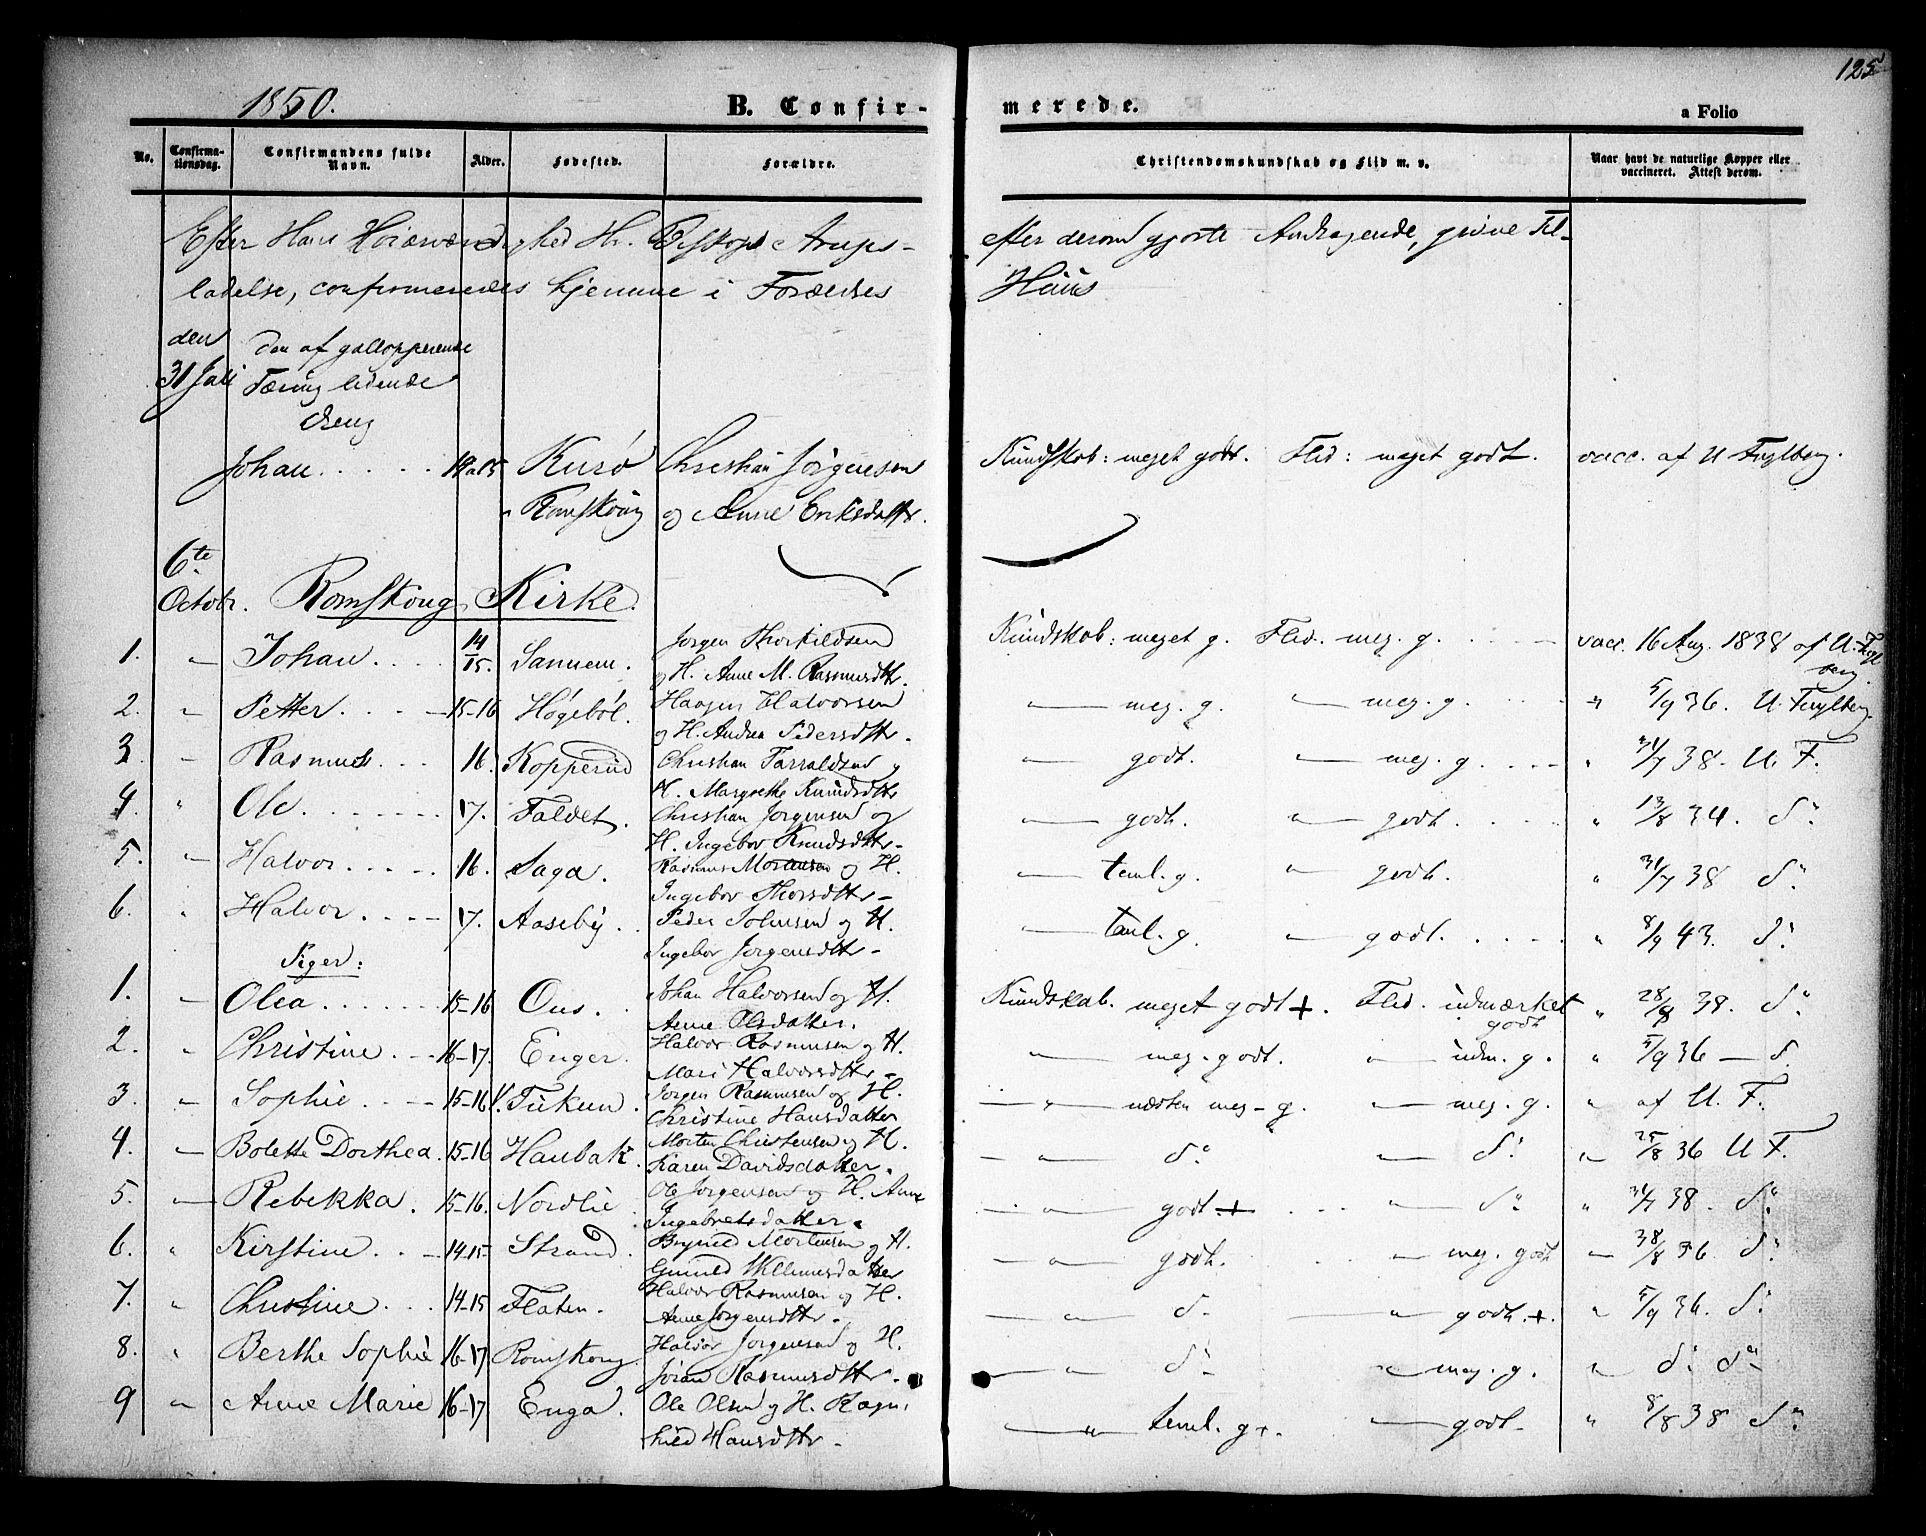 125
1850. B. Confir- merede. a Folio
No. Confirma-tionsdag. Confirmandens fulde Navn. Alder. Fødested. Forældre. Christendomskundskab og Flid m. v. Naar havt de naturlige Kopper eller vaccineret. Attest derom.
Efter Hans Høiærværdighed Hr. Biskop Arups efter derom gjorte Andragende, givne Til-
ladelse, confirmeredes hjemme i Forældres Huus
den 31 Juli Den af galloperende
Tæring lidende
Dreng
Johan. 14 a 15 Kurø Christian Jørgensen Kundskab: meget godt. Flid: meget godt. vacc. af U Fuglberg.
Romskoug og Anne Eriksdattr.
6te
Octobr. Romskoug Kirke.
1. " Johan. 14/15. Sannem. Jørgen Thorkildsen Kundskab: meget g. Flid. meg. g. vacc. 16 Aug. 1838 af U. Fugl
og H. Anne M. Rasmusdttr. berg.
2. " Petter. 15-16 Høgebøl. Haagen Halvorsen — meg. g. " — meg. g. " 5/9 36. U. Fuglberg.
og H. Andrea Pedersdttr.
3. " Rasmus. 16. Kopperud Christian Tarraldsen og — godt. " — meg. g. " 31/7 38. U. F.
H. Margrethe Knudsdttr
4. " Ole. 17. Faldet. Christian Jørgensen og — godt. " — godt. " 13/8 34. d°
H. Ingebor Knudsdttr-
5. " Halvor. 16. Saga. Rasmus Mortensen og H. — teml. g. " — godt. " 31/7 38 d°
Ingebor Thorsdttr-
6. " Halvor. 17. Aaseby. Peder Johnsen og H. — teml. g. " — godt. " 8/9 43. d°
Ingebor Jørgensdttr-
Piger:
1. " Olea. 15-16 Ous. Johan Halvorsen og H. Kundskab. meget godt +. Flid. udmærket godt " 28/8 38. d°
Anne Olsdatter.
2. " Christine. 16-17. Enger. Halvor Rasmusen og H. " — meg. godt. " — udm. g. " 5/9 36 — d.
Mari Halvorsdttr-
3. " Sophie. 15-16 V. Tukun. Jørgen Rasmusen og H. — " — næsten meg. g. " — meg. g. " af U. F.
Christine Hansdatter
4. " Bolette Dorthea. 15-16 Haubak. Morten Christensen og H. — " — d° " — d° " 25/8 36 U F.
Karen Davidsdatter.
5. " Rebekka. 15-16. Nordlie. Ole Jørgensen og H. Anne — " — godt + — " — d° " 31/7 38. d°
Ingebretsdatter.
6. " Kirstine. 14-15 Strand. Brynild Mortensen og H. — " — godt. " — meg. godt " 38/8 36. d°
Gunild Willumsdatter
7. " Christine. 14-15 Flaten. Halvor Rasmusen og H. — " — d° — " — godt. +. " 5/9 36. d°
Anne Jørgensdttr.
8. " Berthe Sophie 16-17 Romskoug. Halvor Jørgensen og H. — " — d° " — meg. g. " d° d°
Jøran Rasmusdttr.
9 " Anne Marie 16-17 Enga. Ole Olsen og H. Ragn- — " — teml. g +. — godt- " 8/8 38 d°
hild Hansdttr-